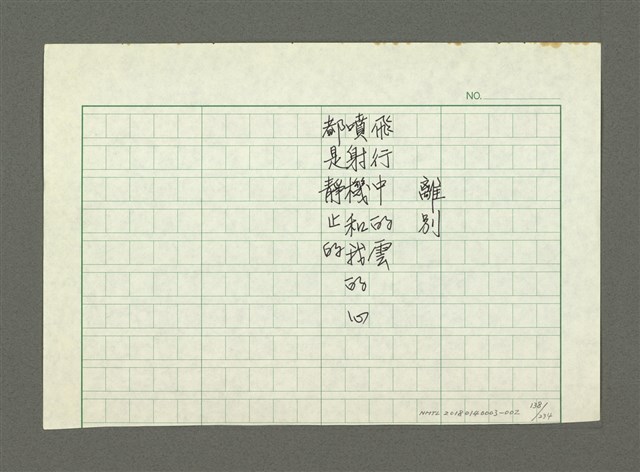 NO.
離別
飛行中的雲
噴射機和我的心
都是靜止的
NMTL 20180140003-002
138/234